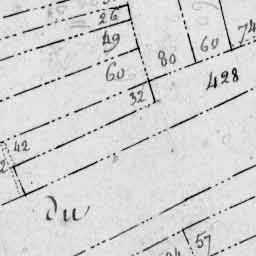 26
49
60
80
60
74
428
32
42
Du
57